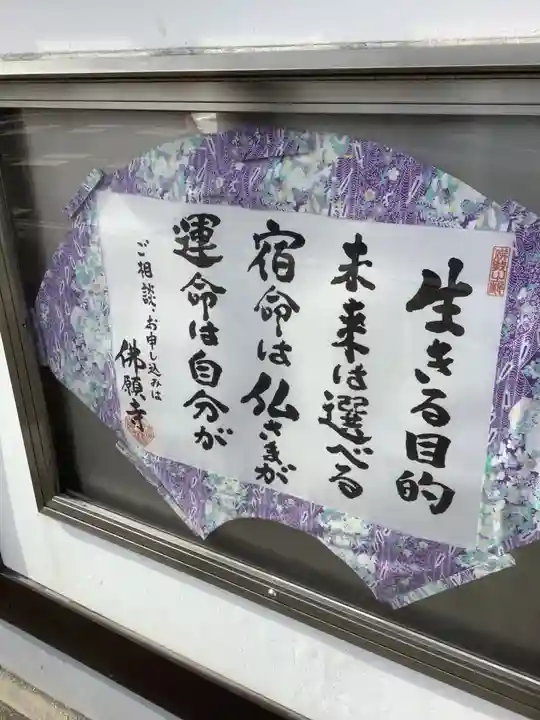 生きる目的
未来は選べる
宿命は仏さまが
運命は自分が
ご相談・お申し込みは
佛願寺